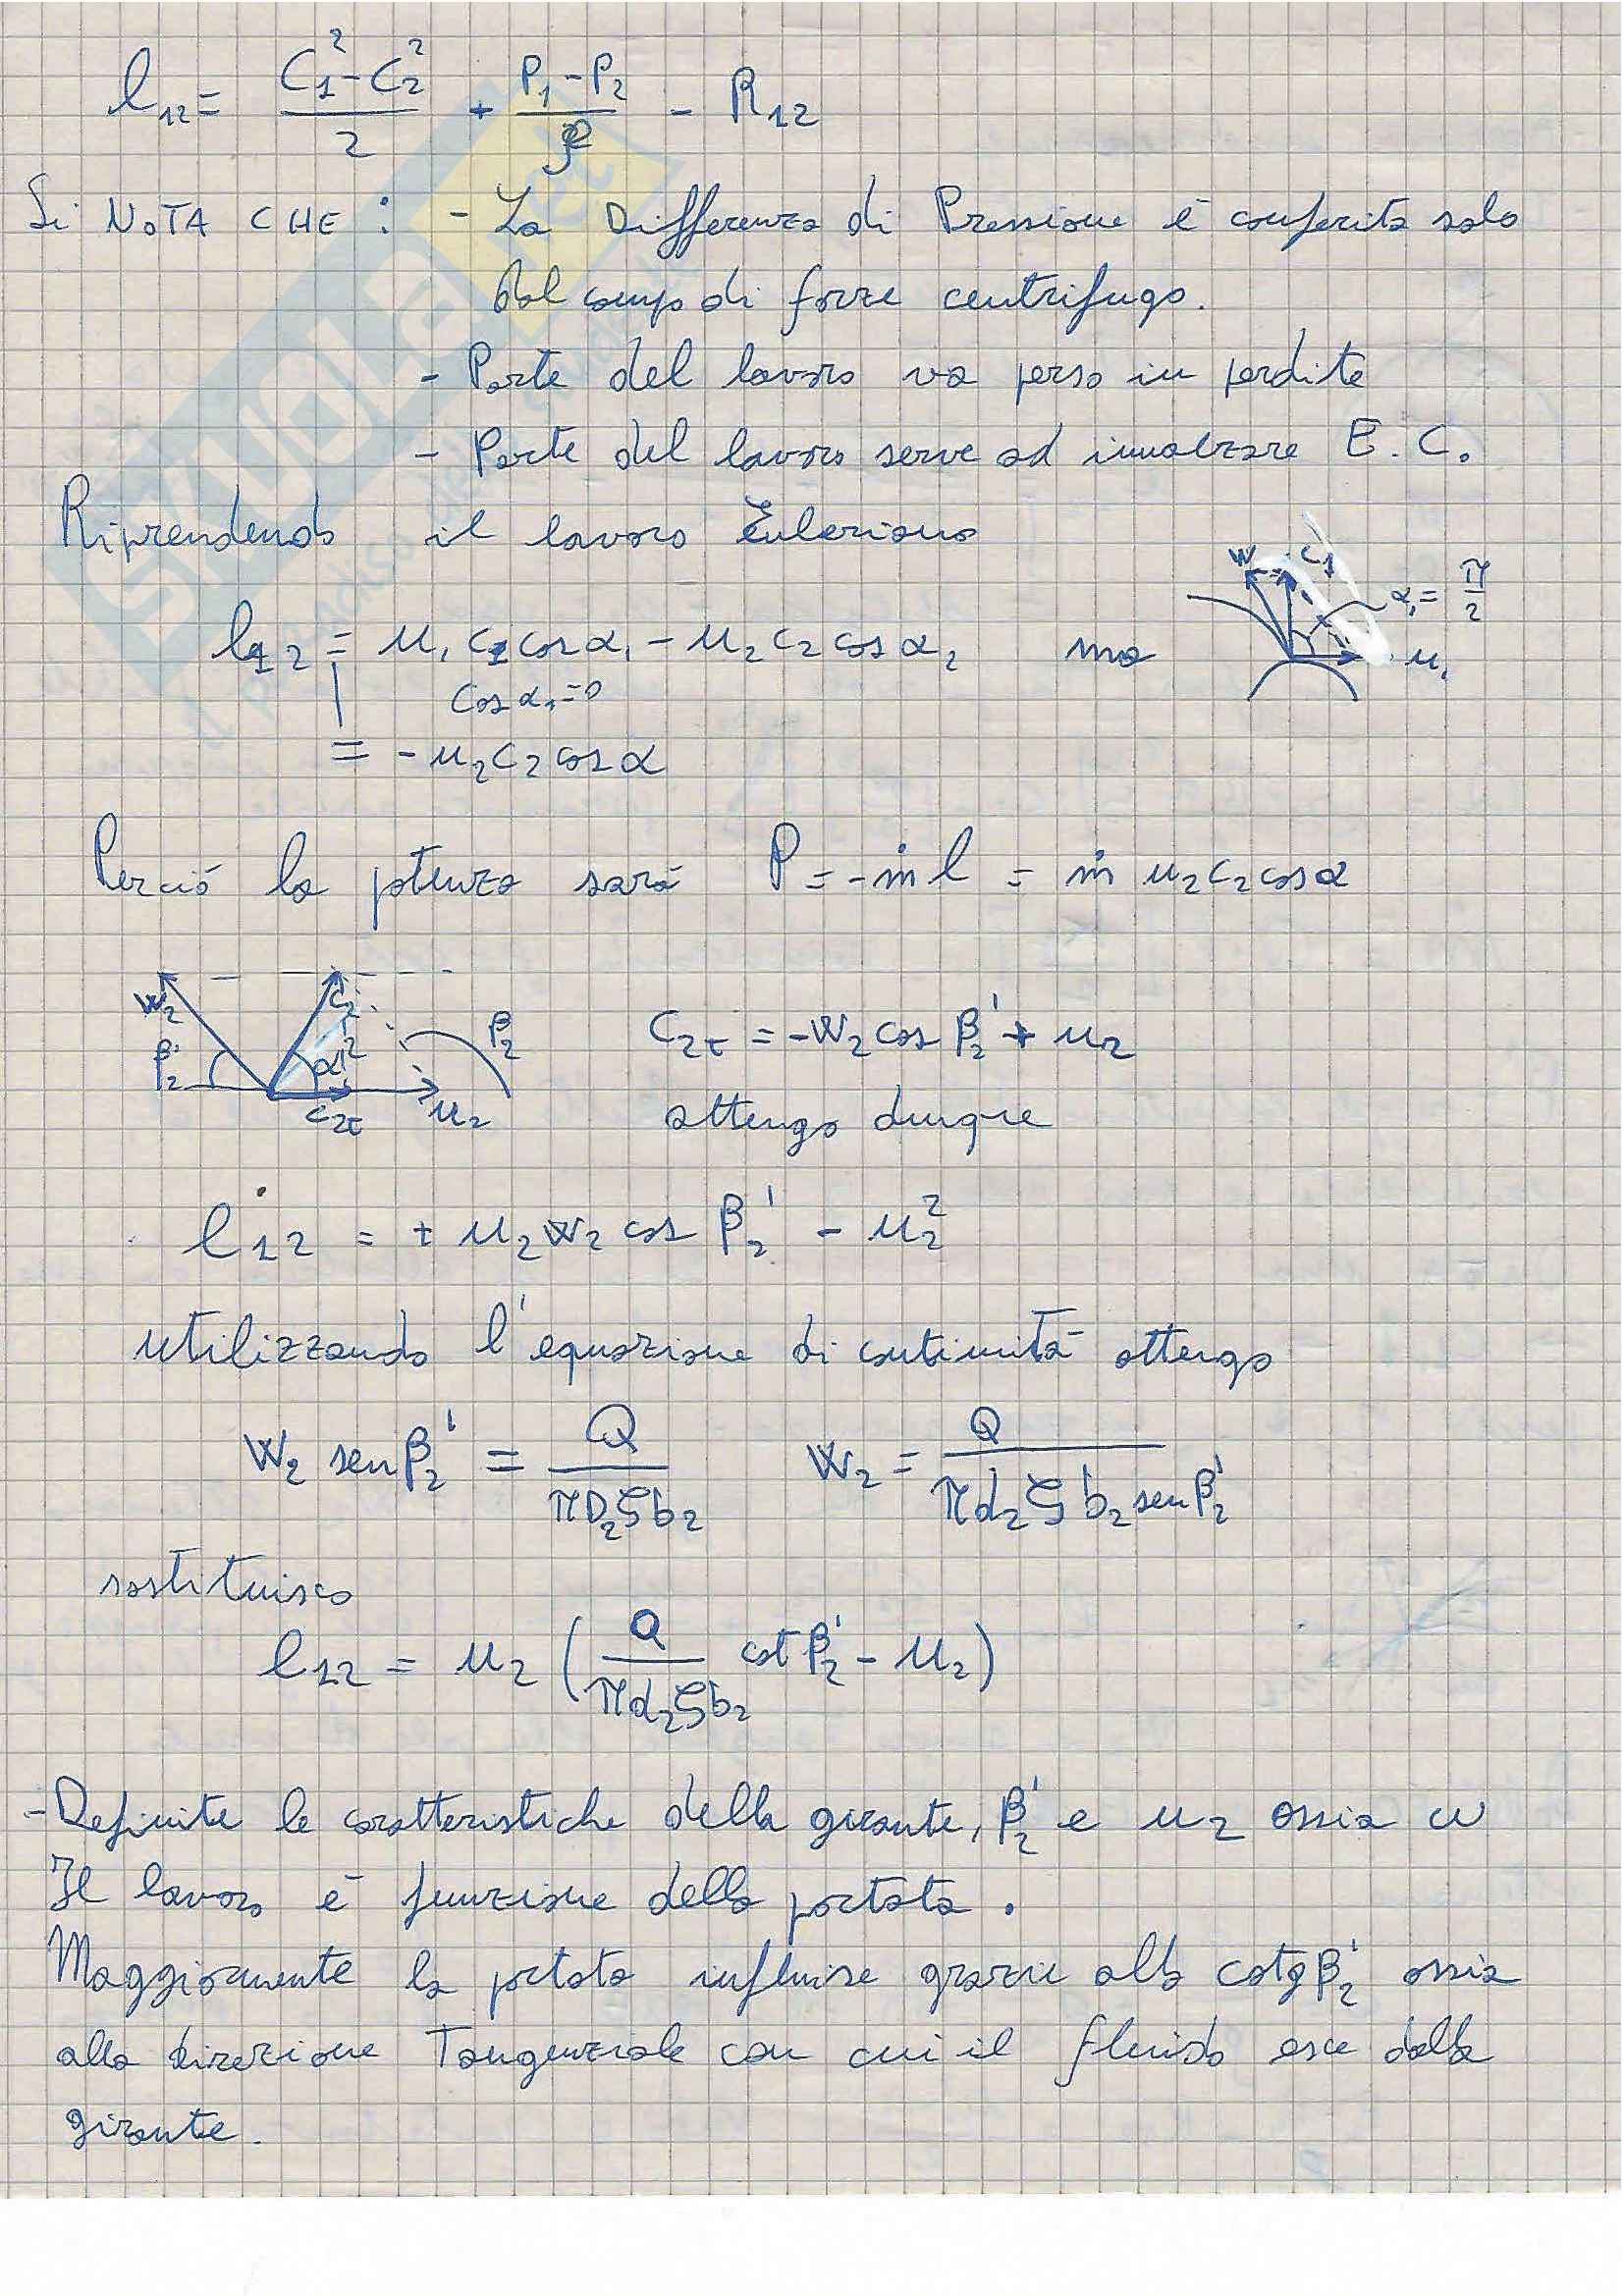 l₁₂ = (C₁² - C₂²)/2 + (P₁ - P₂)/ρ - R₁₂
Si NOTA CHE : - La Differenza di Pressione è conferita solo
dal campo di forze centrifugo.
- Parte del lavoro va perso in perdite
- Parte del lavoro serve ad innalzare E.C.
Riprendendo il lavoro Euleriano
l₁₂ = u₁ c₁ cos α₁ - u₂ c₂ cos α₂ ma
cos α₁ = 0
= - u₂ c₂ cos α
W C₁ α₁ = π/2 u₁
Perciò la potenza sarà P = - ṁ l = ṁ u₂ c₂ cos α
W₂ C₂ β₂' α₂ β₂ C₂τ u₂
C₂τ = - W₂ cos β₂' + u₂
ottengo dunque
l₁₂ = + u₂ w₂ cos β₂' - u₂²
utilizzando l'equazione di continuità ottengo
W₂ sen β₂' = Q/(π D₂ ξ b₂) W₂ = Q/(π d₂ ξ b₂ sen β₂')
sostituisco
l₁₂ = u₂ (Q/(π d₂ ξ b₂) cot β₂' - u₂)
- Definite le caratteristiche della girante, β₂' e u₂ ossia ω
Il lavoro è funzione della portata.
Maggiormente la portata influisce grazie alla cotg β₂' ossia
alla direzione Tangenziale con cui il fluido esce dalla
girante.
SKUOLA.net